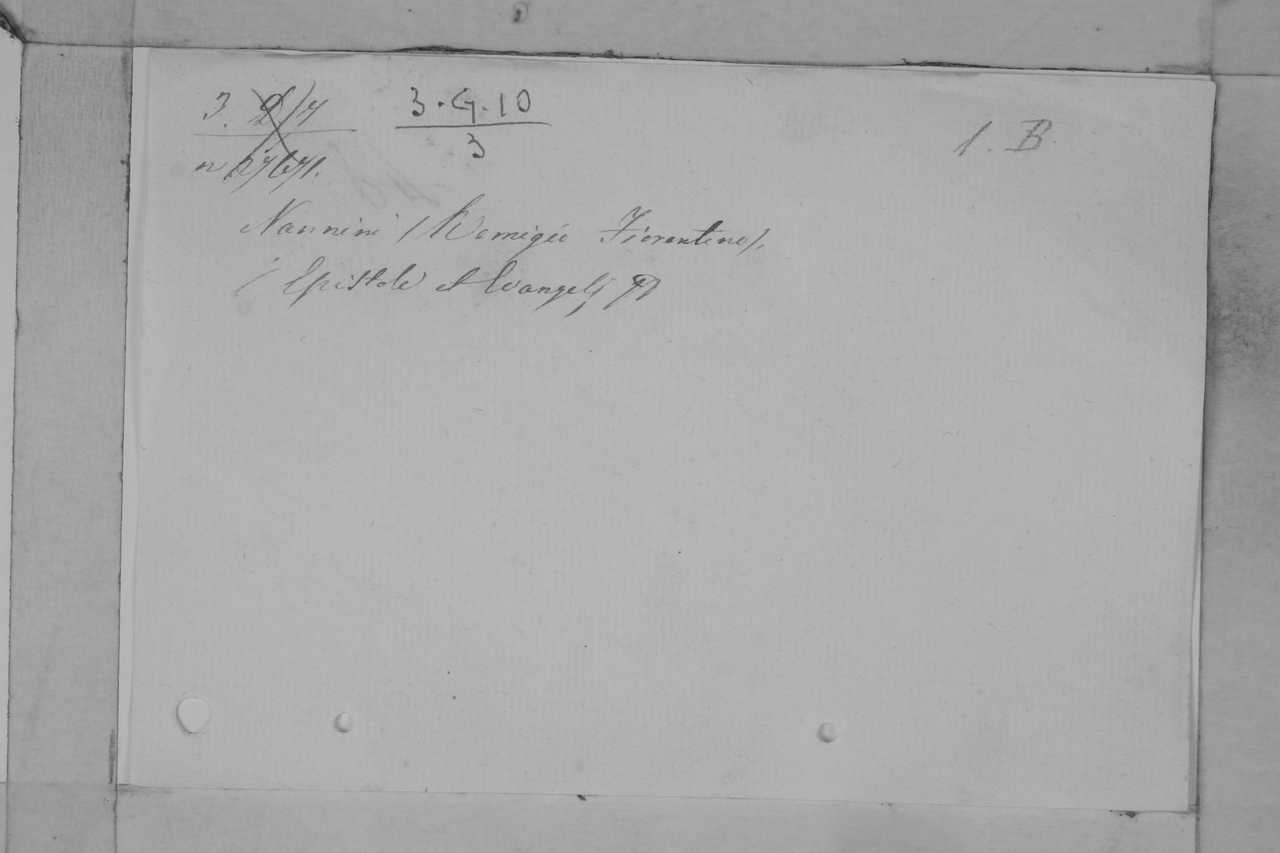 3. 3·G·10 1. B.
3
n
Nannini (Remigio Fiorentino).
Epistole et Evangelj